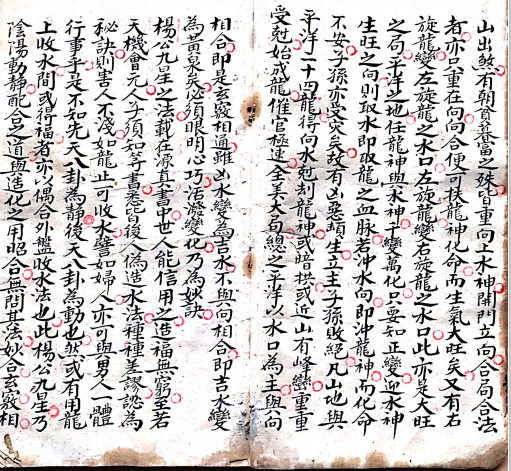 山出煞有朝貧暮富之殊皆重向上水神開門立向合局合法
者亦只重在向向合便可扶龍神化命而生氣大旺矣又有右
旋龍變左旋龍之水口左旋龍變右旋龍之水口此亦是大旺
之局平洋之地任龍神與水神千變萬化只要知正變迎水神
生旺之向則取水即取龍之血脉若沖水向即沖龍神而化命
不安子孫亦受灾矣故有凶惡頽生立主子孫敗絕凡山地與
平洋二十四龍得向水尅刦龍神或暗拱或近山有峰巒重重
受尅始成龍催官極速全美大局總之平洋以水口為主與向
相合即是玄竅相通雖凶水變為吉水不與向相合即吉水變
為黃泉矣必須眼明心巧活潑變化乃為妙訣
楊公九星之法載在源真書中世人能信用之造福無窮至若
天機會元人子須知等書悉皆後人偽造水法種種差謬認為
秘訣則害人不淺如龍止可收水譬如婦人亦可與男人一體
行事乎是不知先天八卦為靜後天八卦為動也然或有用龍
上收水間或得福者亦以偶合外盤收水法也此楊公九星乃
陰陽動靜配合之道與造化之用昭合無間其法妙合玄竅相